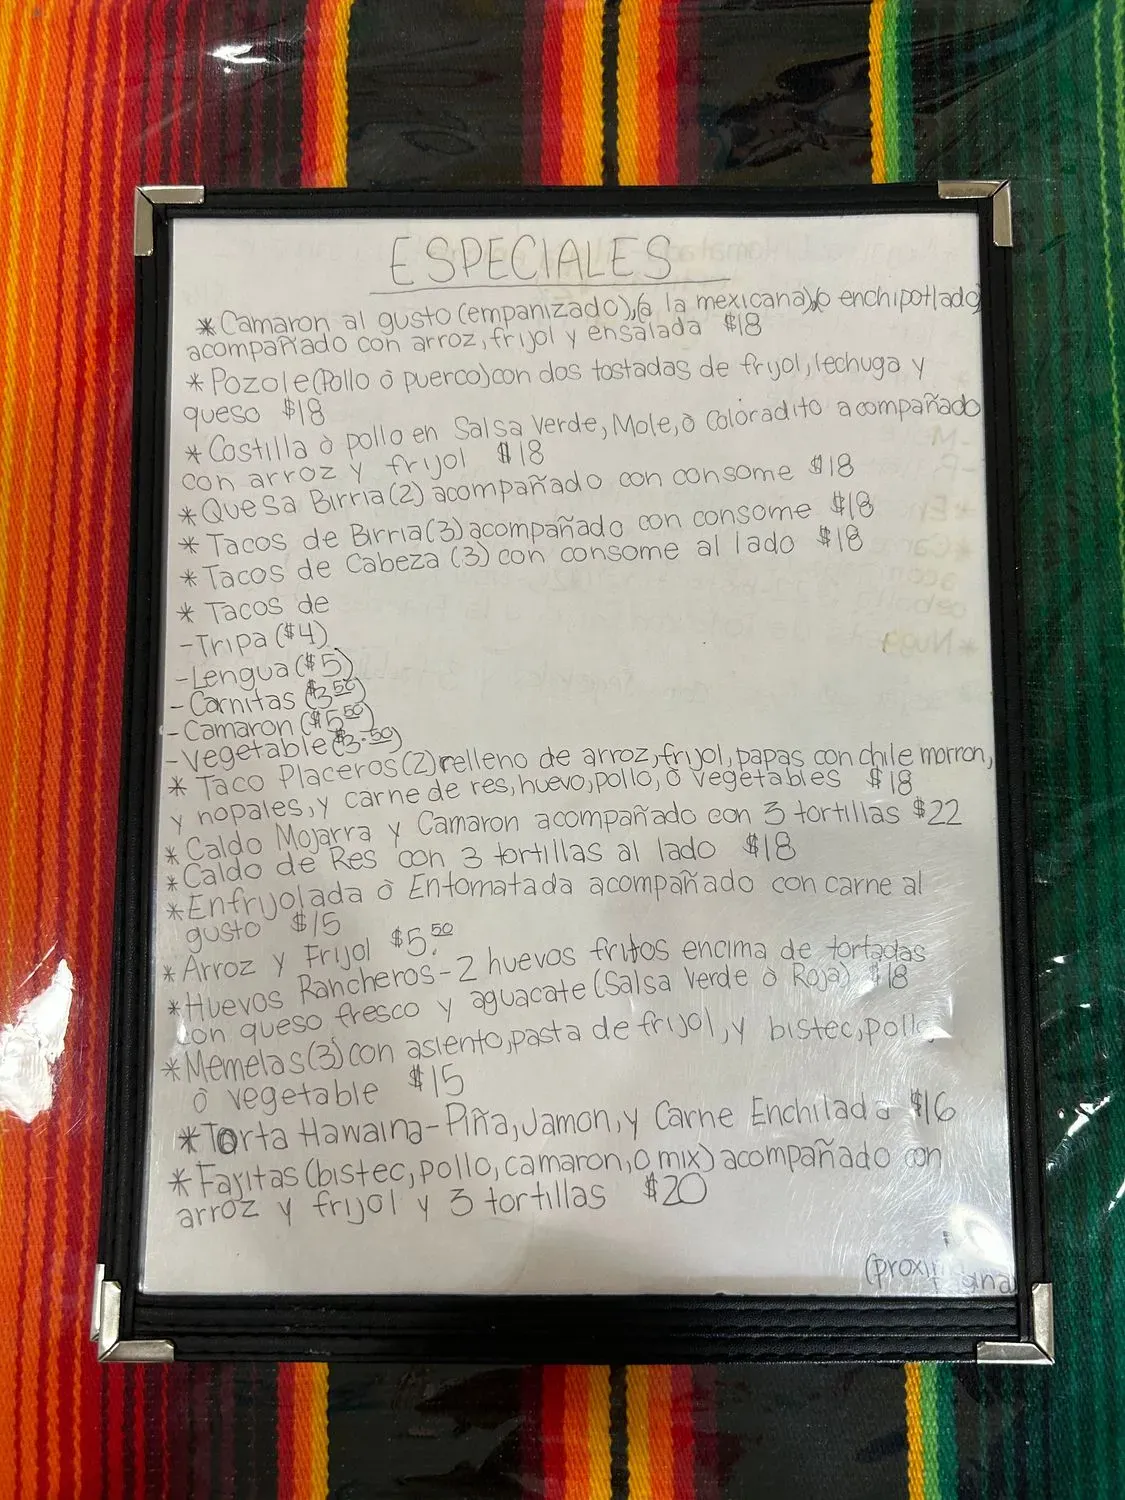 ESPECIALES
* Camaron al gusto (empanizado), (a la mexicana), (o enchipotlado)
acompañado con arroz, frijol y ensalada $18
* Pozole (Pollo ò puerco) con dos tostadas de frijol, lechuga y
queso $18
* Costilla ò pollo en Salsa Verde, Mole, ò Coloradito acompañado
con arroz y frijol $18
* Quesa Birria (2) acompañado con consome $18
* Tacos de Birria (3) acompañado con consome $18
* Tacos de Cabeza (3) con consome al lado $18
* Tacos de
- Tripa ($4)
- Lengua ($5)
- Carnitas ($3.50)
- Camaron ($5.50)
- Vegetable ($3.50)
* Taco Placeros (2) relleno de arroz, frijol, papas con chile morron,
y nopales, y carne de res, huevo, pollo, ò vegetables $18
* Caldo Mojarra y Camaron acompañado con 3 tortillas $22
* Caldo de Res con 3 tortillas al lado $18
* Enfrijolada ò Entomatada acompañado con carne al
gusto $15
* Arroz y Frijol $5.50
* Huevos Rancheros - 2 huevos fritos encima de tortadas
con queso fresco y aguacate (Salsa Verde ò Roja) $18
* Memelas (3) con asiento, pasta de frijol, y bistec, pollo
ò vegetable $15
* Torta Hawaina - Piña, Jamon, y Carne Enchilada $16
* Fajitas (bistec, pollo, camaron, o mix) acompañado con
arroz y frijol y 3 tortillas $20